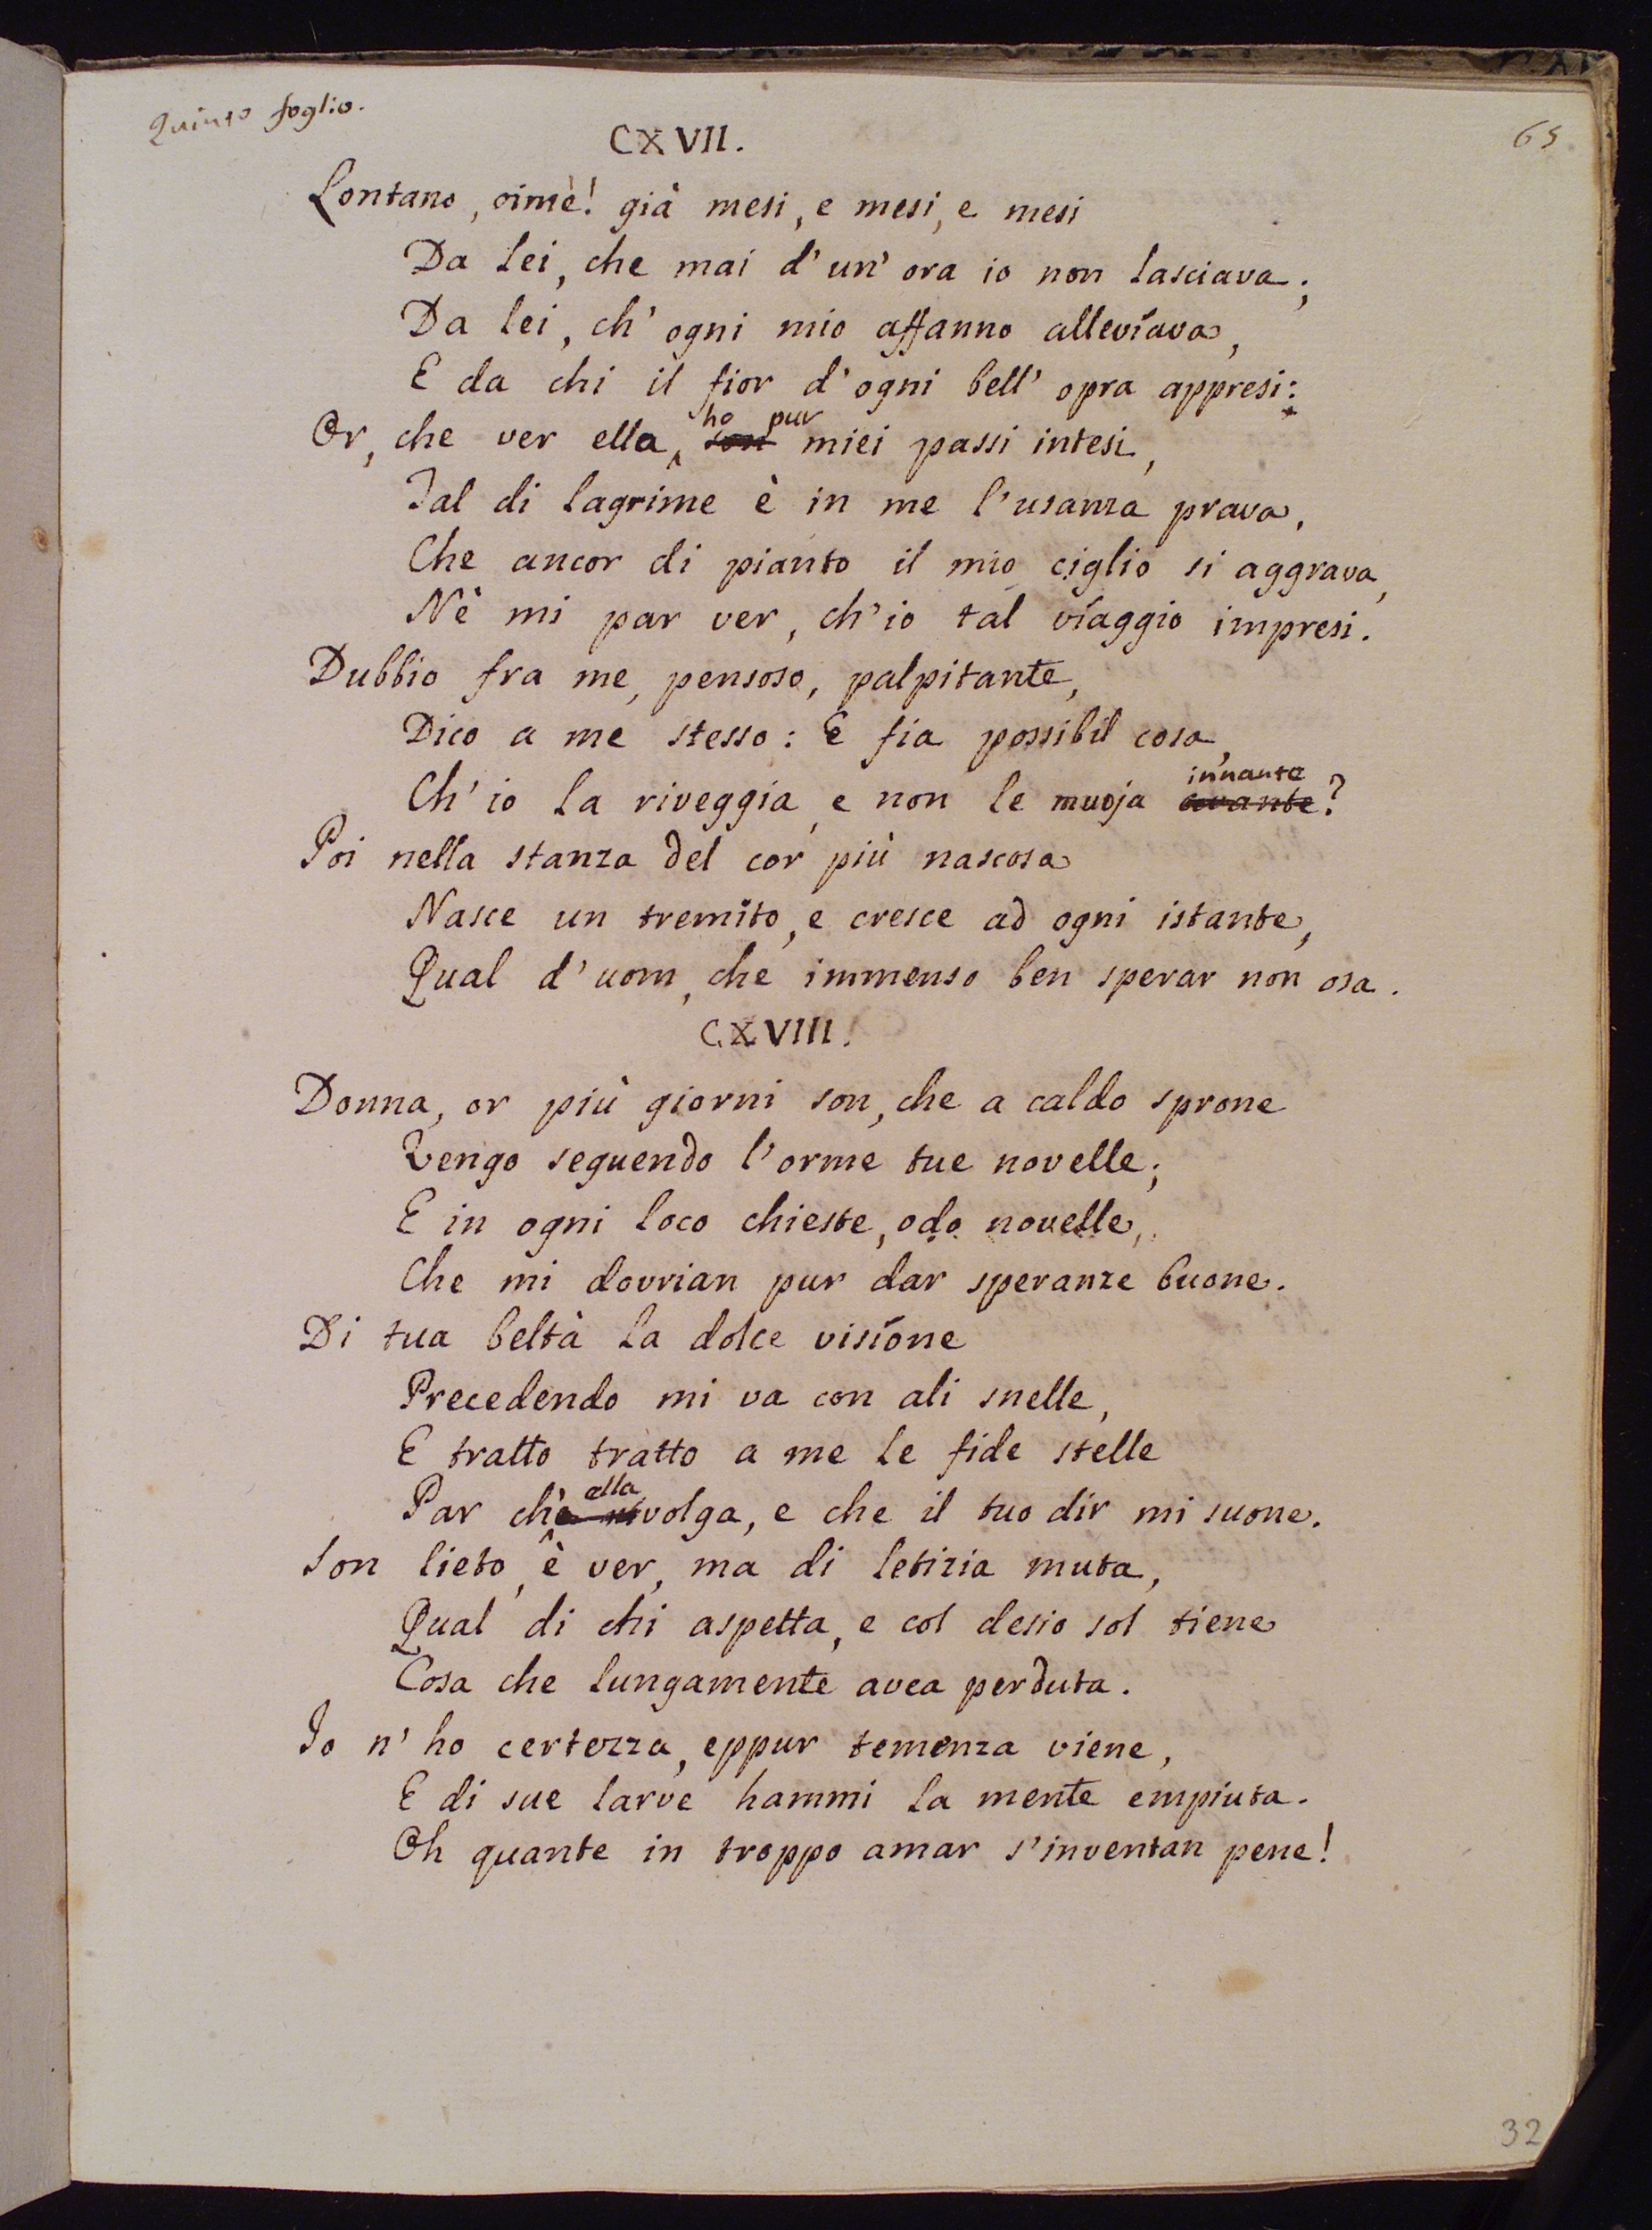 Quinto foglio.
65
CXVII.
Lontano, oimè! già mesi, e mesi, e mesi
Da lei, che mai d'un' ora io non lasciava;
Da lei, ch' ogni mio affanno allevíava,
E da chi il fior d'ogni bell' opra appresi:
ho pur
Or, che ver ella, son miei passi intesi,
Tal di lagrime è in me l'usanza prava,
Che ancor di pianto il mio ciglio si aggrava,
Nè mi par ver, ch'io tal víaggio impresi.
Dubbio fra me, pensoso, palpitante,
Dico a me stesso: E fia possibil cosa,
innante
Ch'io la riveggia, e non le muoja avante?
Poi nella stanza del cor più nascosa
Nasce un tremito, e cresce ad ogni istante,
Qual d'uom, che immenso ben sperar non osa.
CXVIII.
Donna, or più giorni son, che a caldo sprone
Vengo seguendo l'orme tue novelle;
E in ogni loco chieste, odo novelle,
Che mi dovrian pur dar speranze buone.
Di tua beltà la dolce visíone
Precedendo mi va con ali snelle,
E tratto tratto a me le fide stelle
ella
Par che volga, e che il tuo dir mi suone.
Son lieto, è ver, ma di letizia muta,
Qual di chi aspetta, e col desio sol tiene
Cosa che lungamente avea perduta.
Io n' ho certezza, eppur temenza viene,
E di sue larve hammi la mente empiuta.
Oh quante in troppo amar s'inventan pene!
32